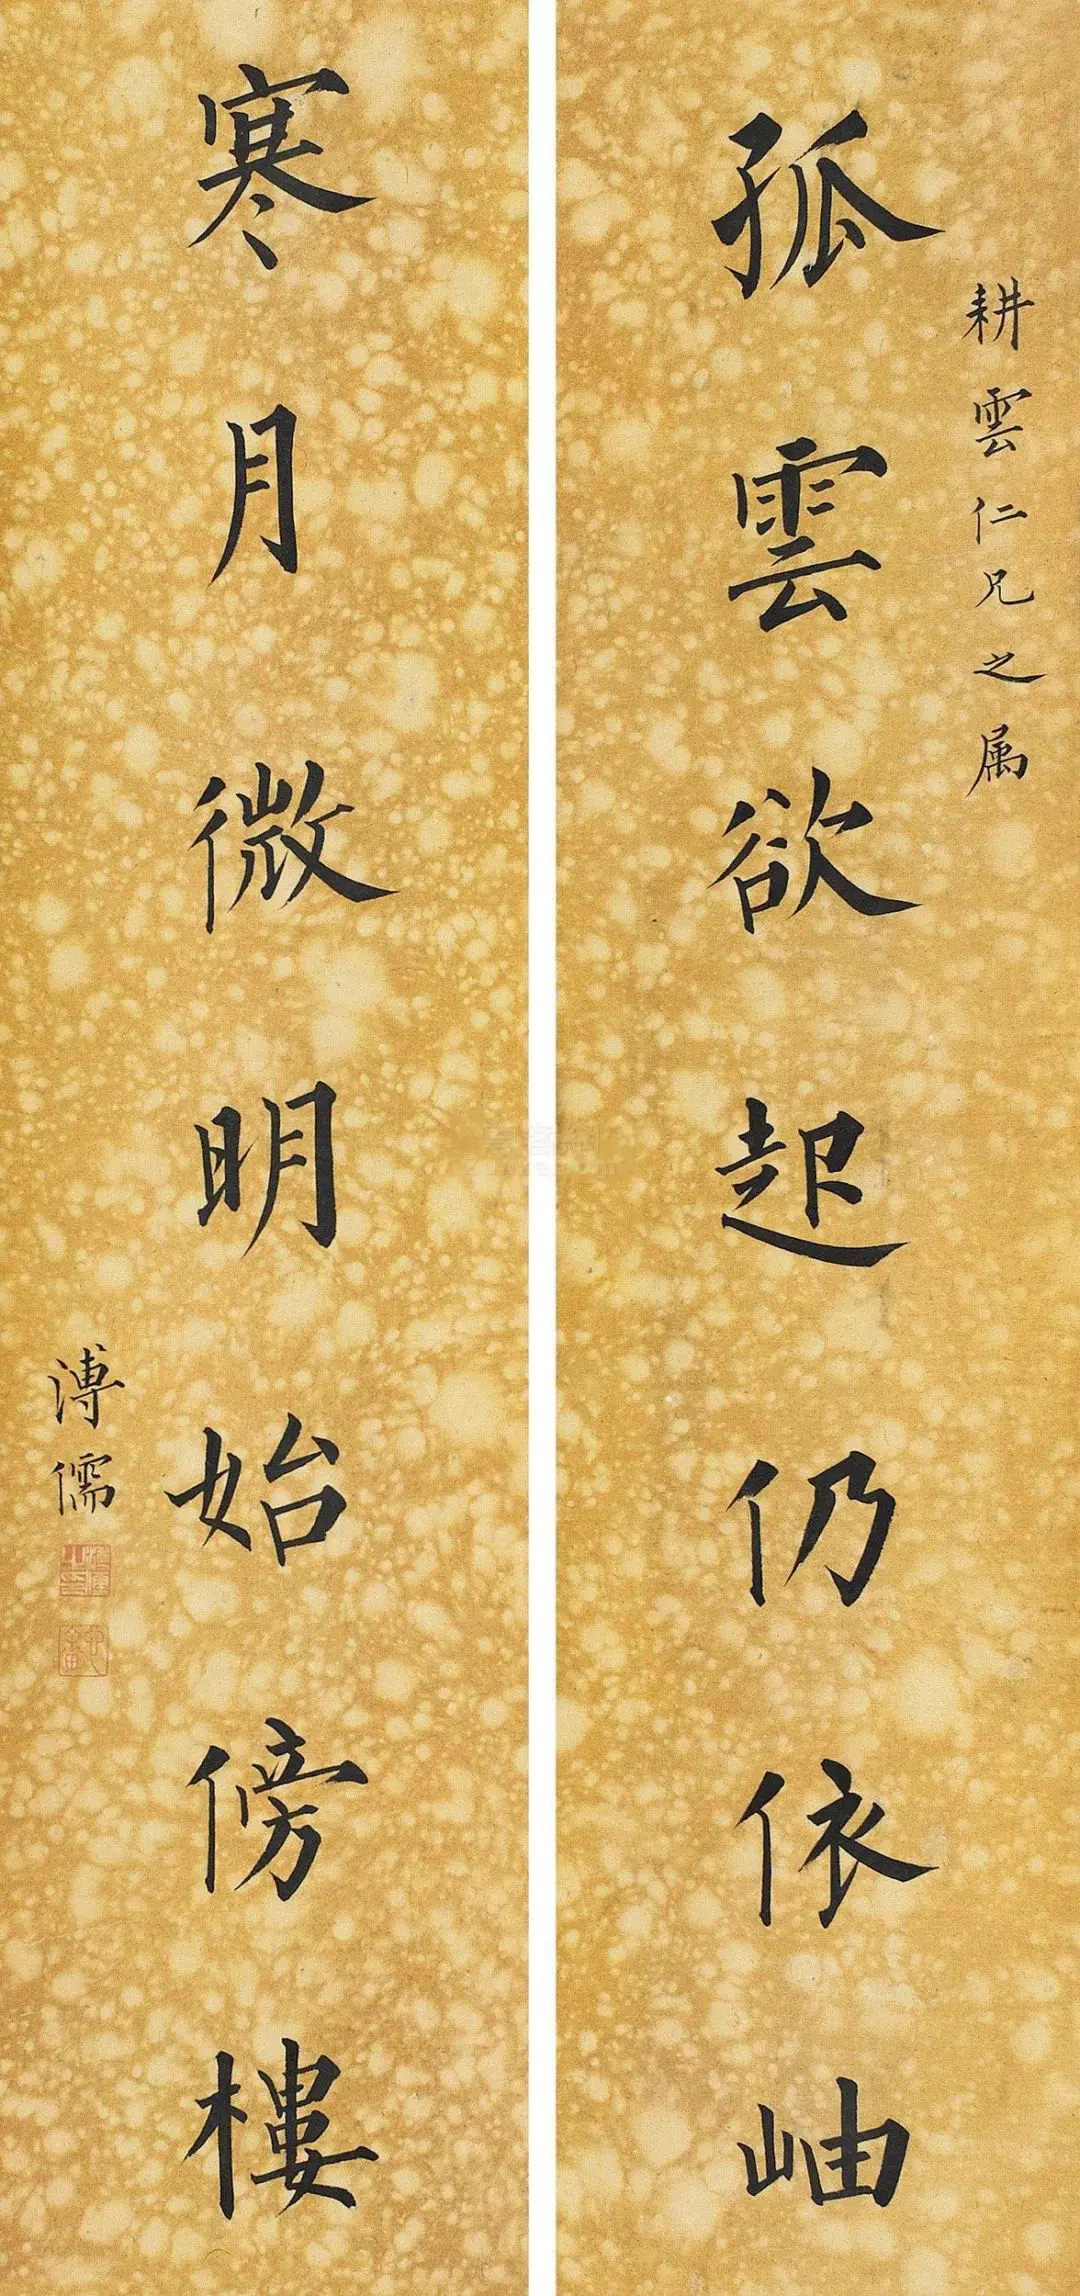 耕雲仁兄之属
孤雲欲起仍依岫
寒月微明始傍樓
溥儒